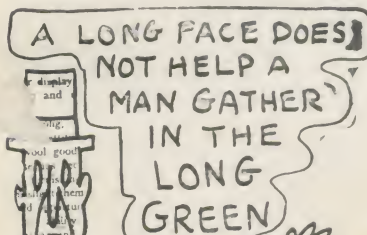 A LONG FACE DOES
NOT HELP A
MAN GATHER
IN THE
LONG
GREEN
display
and